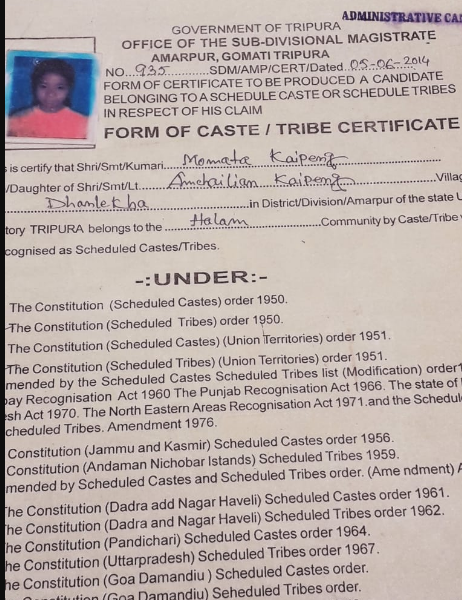 ADMINISTRATIVE CA
GOVERNMENT OF TRIPURA
OFFICE OF THE SUB-DIVISIONAL MAGISTRATE
AMARPUR, GOMATI TRIPURA
NO. 935 SDM/AMP/CERT/Dated 05-06-2014
FORM OF CERTIFICATE TO BE PRODUCED A CANDIDATE
BELONGING TO A SCHEDULE CASTE OR SCHEDULE TRIBES
IN RESPECT OF HIS CLAIM
FORM OF CASTE / TRIBE CERTIFICATE
s is certify that Shri/Smt/Kumari Momata Kaipeng
/Daughter of Shri/Smt/Lt. Amchailian Kaipeng Villag
Dhanlekha in District/Division/Amarpur of the state U
tory TRIPURA belongs to the Halam Community by Caste/Tribe
cognised as Scheduled Castes/Tribes.
-:UNDER:-
The Constitution (Scheduled Castes) order 1950.
The Constitution (Scheduled Tribes) order 1950.
The Constitution (Scheduled Castes) (Union Territories) order 1951.
The Constitution (Scheduled Tribes) (Union Territories) order 1951.
mended by the Scheduled Castes Scheduled Tribes list (Modification) order1
bay Recognisation Act 1960 The Punjab Recognisation Act 1966. The state of
esh Act 1970. The North Eastern Areas Recognisation Act 1971.and the Schedul
cheduled Tribes. Amendment 1976.
Constitution (Jammu and Kasmir) Scheduled Castes order 1956.
Constitution (Andaman Nichobar Istands) Scheduled Tribes 1959.
mended by Scheduled Castes and Scheduled Tribes order. (Ame ndment) A
The Constitution (Dadra add Nagar Haveli) Scheduled Castes order 1961.
The Constitution (Dadra and Nagar Haveli) Scheduled Tribes order 1962.
he Constitution (Pandichari) Scheduled Castes order 1964.
he Constitution (Uttarpradesh) Scheduled Tribes order 1967.
he Constitution (Goa Damandiu ) Scheduled Castes order.
Constitution (Goa Damandiu) Seheduled Tribes order.